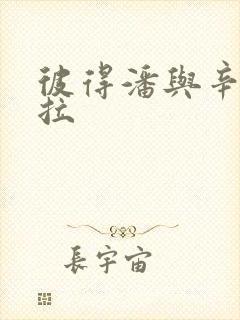 彼得潘與辛
拉
長宇宙